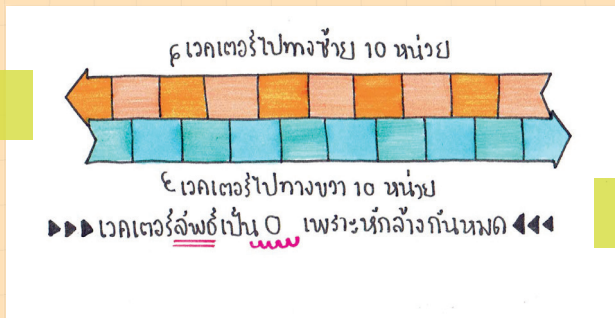 เวคเตอร์ไปทางซ้าย 10 หน่วย
เวคเตอร์ไปทางขวา 10 หน่วย
เวคเตอร์ลัพธ์เป็น 0 เพราะหักล้างกันหมด